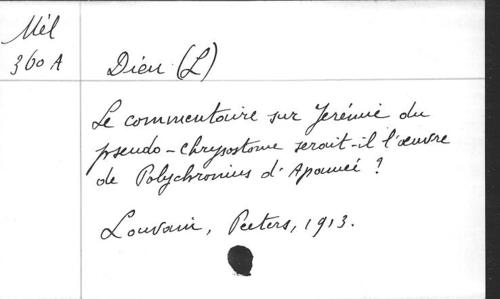 Mél
360 A
Dieu (L)
Le commentaire sur Jérémie du
pseudo-chrysostome serait-il l'œuvre
de Polychronius d'Apamée ?
Louvain, Peeters, 1913.